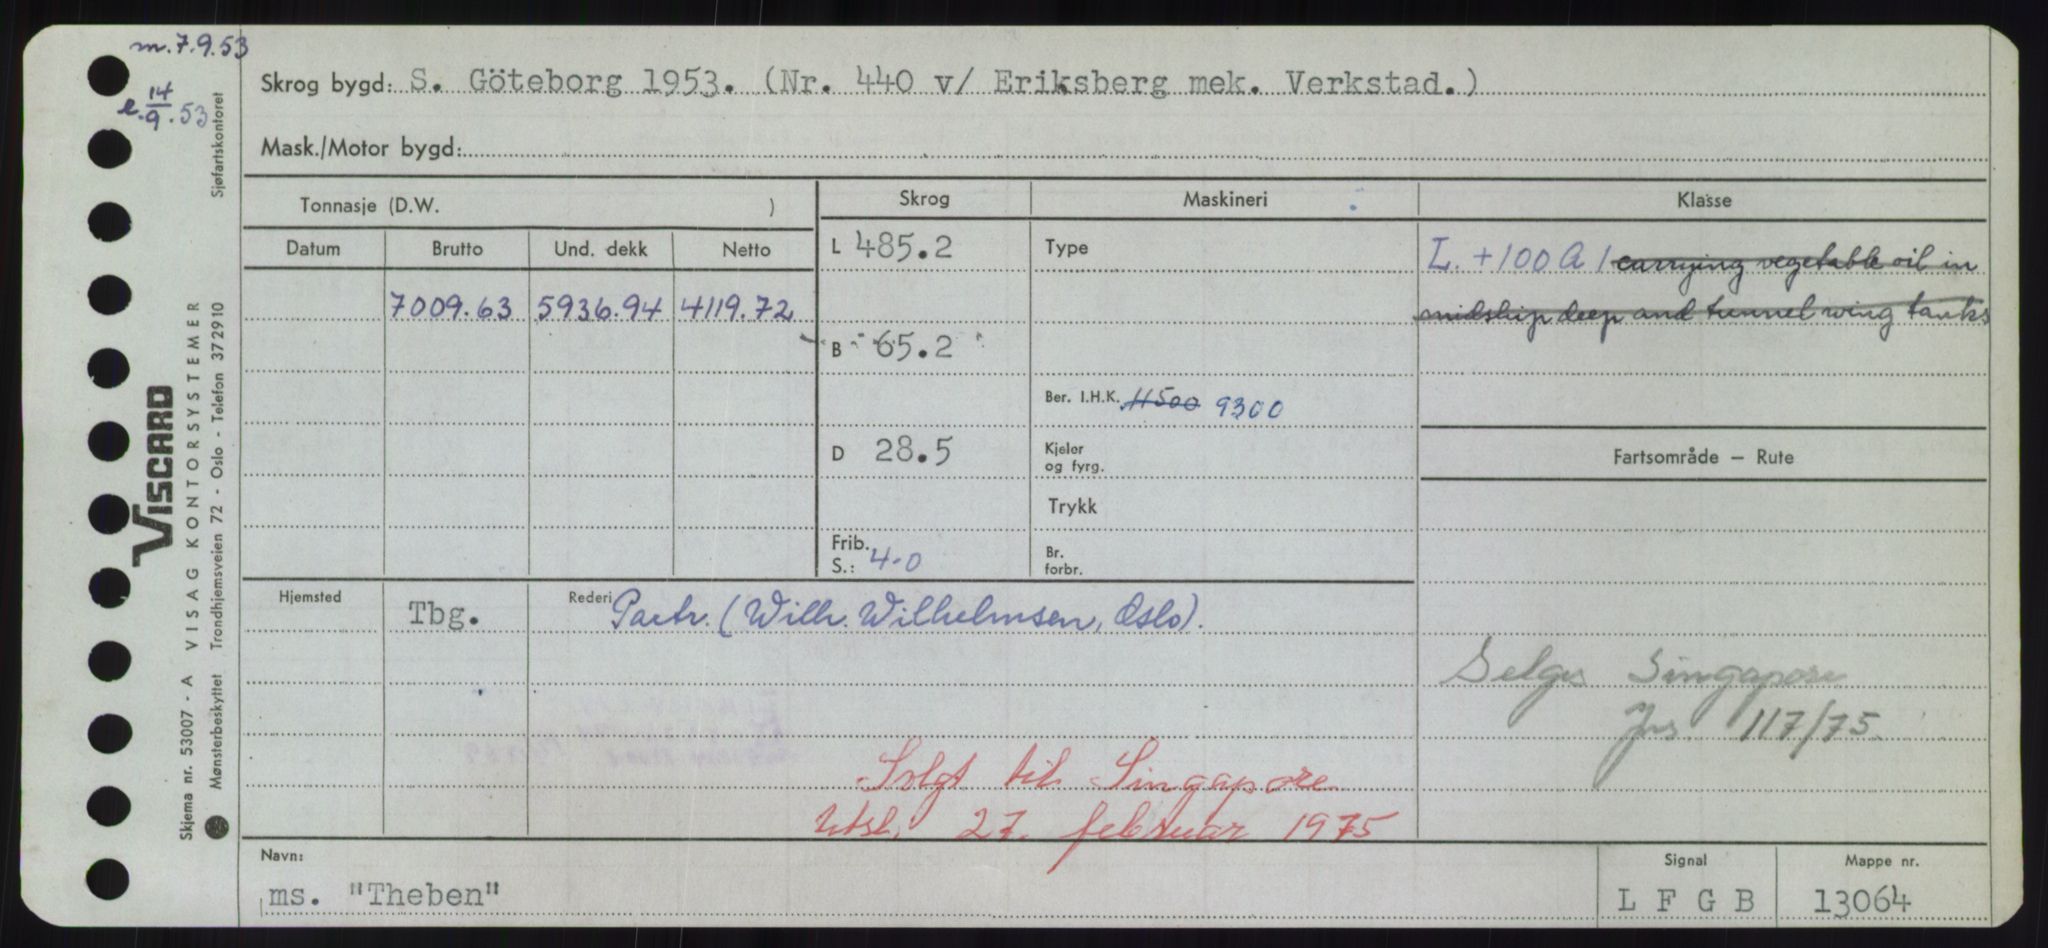 m. 7.9.53
e. 14/9. 53
Skrog bygd: S. Göteborg 1953. (Nr. 440 v/ Eriksberg mek. Verkstad.)
Mask./Motor bygd:
Tonnasje (D.W. )
Skrog
Maskineri
Klasse
Datum Brutto Und. dekk Netto
7009.63 5936.94 4119.72
L 485.2
B 65.2
D 28.5
Frib.
S.: 4-0
Type
Ber. I.H.K. 11500 9300
Kjeler
og fyrg.
Trykk
Br.
forbr.
L. +100 A 1 carrying vegetable oil in
midship deep and tunnel wing tanks
Fartsområde – Rute
Hjemsted Tbg. Rederi Partr. (Wilh. Wilhelmsen, Oslo).
Selges Singapore
117/75.
Solgt til Singapore
Utsl. 27. februar 1975
Navn:
ms. "Theben"
Signal
L F G B
Mappe nr.
13064
Sjøfartskontoret
VISCARD
VISAG KONTORSYSTEMER
Trondhjemsveien 72 - Oslo - Telefon 372910
Skjema nr. 53007 - A
Mønsterbeskyttet